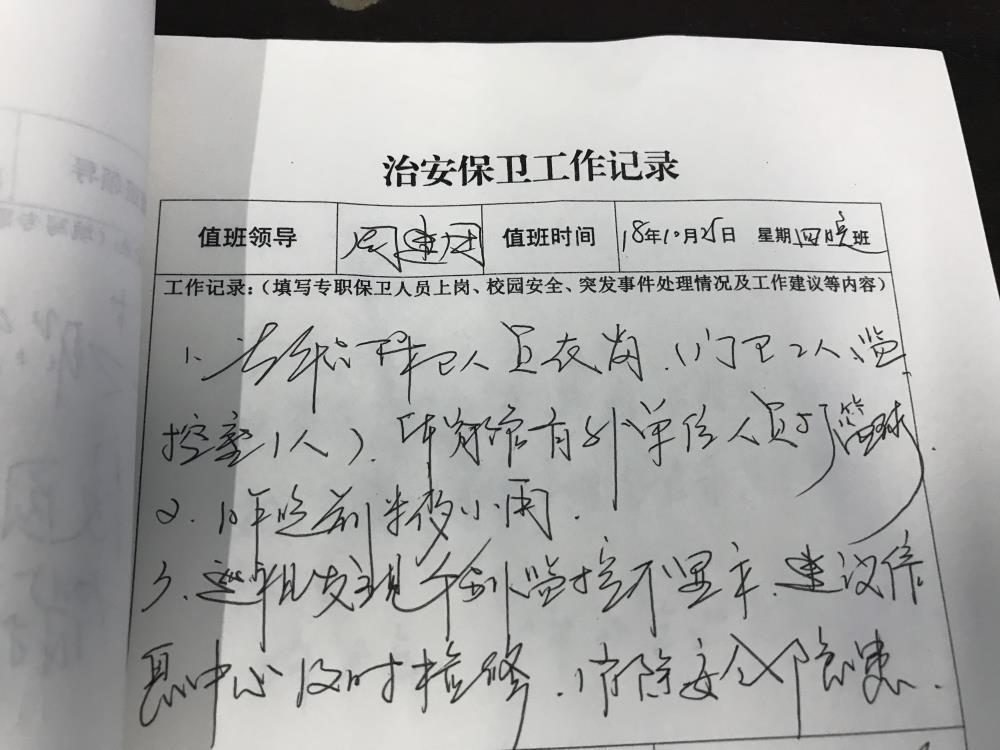 治安保卫工作记录
值班领导 周建国 值班时间 18年10月25日 星期四晚班
工作记录：（填写专职保卫人员上岗、校园安全、突发事件处理情况及工作建议等内容）
1、卫人员在岗，（门卫2人、监
控室1人）。有外单位人员打篮球。
2、今晚前半夜小雨。
3、巡视发现个别监控不显示，建议信
息中心及时检修，消除安全隐患。